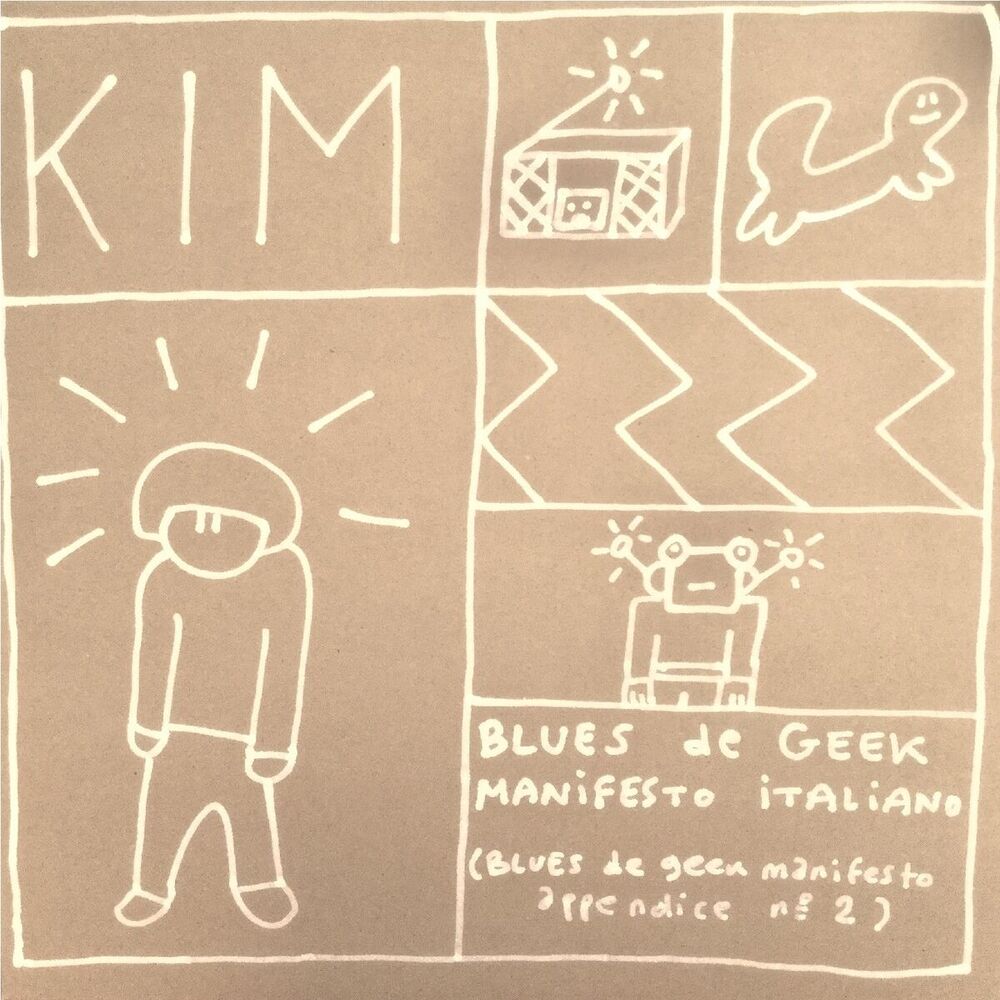 KIM
BLUES de GEEK
MANiFESTO iTALiANO
(BLUES de geek manifesto
appendice nº 2)